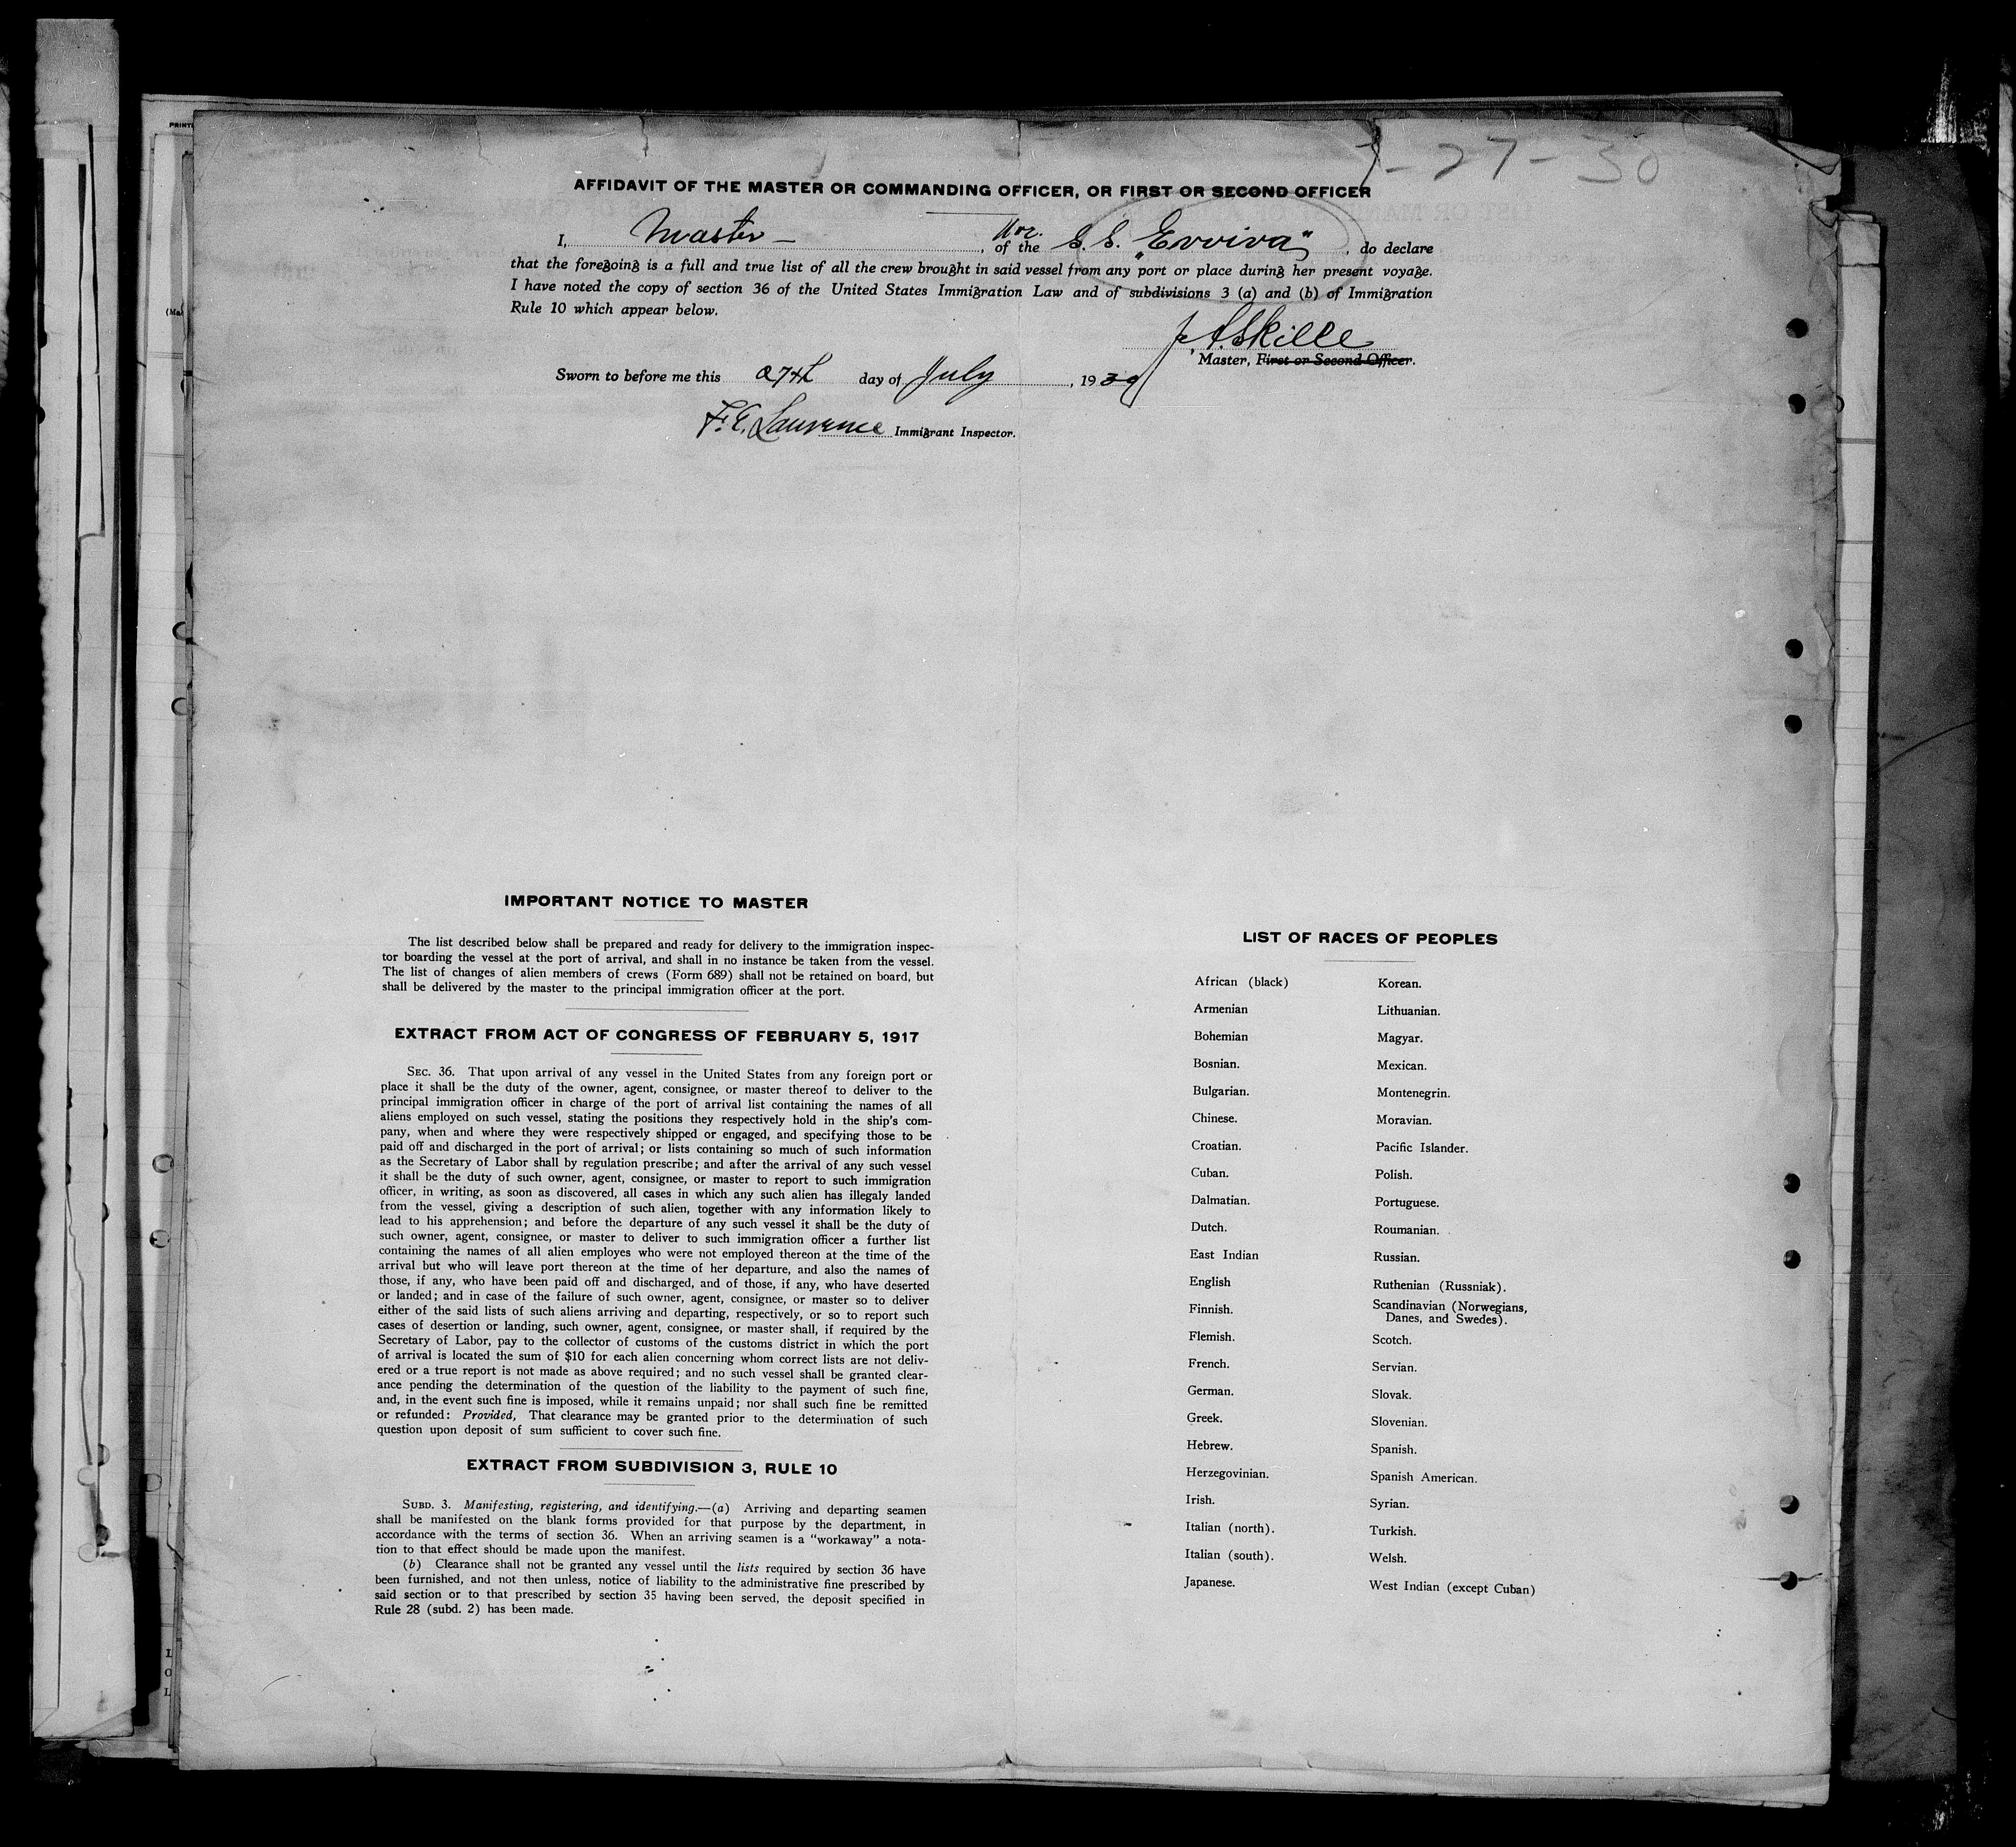 7-27-30
AFFIDAVIT OF THE MASTER OR COMMANDING OFFICER, OR FIRST OR SECOND OFFICER
I, Master, of the Nor. S.S. „Erviva", do declare
that the foregoing is a full and true list of all the crew brought in said vessel from any port or place during her present voyage.
I have noted the copy of section 36 of the United States Immigration Law and of subdivisions 3 (a) and (b) of Immigration
Rule 10 which appear below.
Master, First or Second Officer.
Sworn to before me this 27th day of July, 1930
F. E. Laurence Immigrant Inspector.
IMPORTANT NOTICE TO MASTER
The list described below shall be prepared and ready for delivery to the immigration inspec-
tor boarding the vessel at the port of arrival, and shall in no instance be taken from the vessel.
The list of changes of alien members of crews (Form 689) shall not be retained on board, but
shall be delivered by the master to the principal immigration officer at the port.
EXTRACT FROM ACT OF CONGRESS OF FEBRUARY 5, 1917
SEC. 36. That upon arrival of any vessel in the United States from any foreign port or
place it shall be the duty of the owner, agent, consignee, or master thereof to deliver to the
principal immigration officer in charge of the port of arrival list containing the names of all
aliens employed on such vessel, stating the positions they respectively hold in the ship's com-
pany, when and where they were respectively shipped or engaged, and specifying those to be
paid off and discharged in the port of arrival; or lists containing so much of such information
as the Secretary of Labor shall by regulation prescribe; and after the arrival of any such vessel
it shall be the duty of such owner, agent, consignee, or master to report to such immigration
officer, in writing, as soon as discovered, all cases in which any such alien has illegaly landed
from the vessel, giving a description of such alien, together with any information likely to
lead to his apprehension; and before the departure of any such vessel it shall be the duty of
such owner, agent, consignee, or master to deliver to such immigration officer a further list
containing the names of all alien employes who were not employed thereon at the time of the
arrival but who will leave port thereon at the time of her departure, and also the names of
those, if any, who have been paid off and discharged, and of those, if any, who have deserted
or landed; and in case of the failure of such owner, agent, consignee, or master so to deliver
either of the said lists of such aliens arriving and departing, respectively, or so to report such
cases of desertion or landing, such owner, agent, consignee, or master shall, if required by the
Secretary of Labor, pay to the collector of customs of the customs district in which the port
of arrival is located the sum of $10 for each alien concerning whom correct lists are not deliv-
ered or a true report is not made as above required; and no such vessel shall be granted clear-
ance pending the determination of the question of the liability to the payment of such fine,
and, in the event such fine is imposed, while it remains unpaid; nor shall such fine be remitted
or refunded: Provided, That clearance may be granted prior to the determination of such
question upon deposit of sum sufficient to cover such fine.
EXTRACT FROM SUBDIVISION 3, RULE 10
SUBD. 3. Manifesting, registering, and identifying.—(a) Arriving and departing seamen
shall be manifested on the blank forms provided for that purpose by the department, in
accordance with the terms of section 36. When an arriving seamen is a "workaway" a nota-
tion to that effect should be made upon the manifest.
(b) Clearance shall not be granted any vessel until the lists required by section 36 have
been furnished, and not then unless, notice of liability to the administrative fine prescribed by
said section or to that prescribed by section 35 having been served, the deposit specified in
Rule 28 (subd. 2) has been made.
LIST OF RACES OF PEOPLES
African (black)
Armenian
Bohemian
Bosnian.
Bulgarian.
Chinese.
Croatian.
Cuban.
Dalmatian.
Dutch.
East Indian
English
Finnish.
Flemish.
French.
German.
Greek.
Hebrew.
Herzegovinian.
Irish.
Italian (north).
Italian (south).
Japanese.
Korean.
Lithuanian.
Magyar.
Mexican.
Montenegrin.
Moravian.
Pacific Islander.
Polish.
Portuguese.
Roumanian.
Russian.
Ruthenian (Russniak).
Scandinavian (Norwegians,
Danes, and Swedes).
Scotch.
Servian.
Slovak.
Slovenian.
Spanish.
Spanish American.
Syrian.
Turkish.
Welsh.
West Indian (except Cuban)